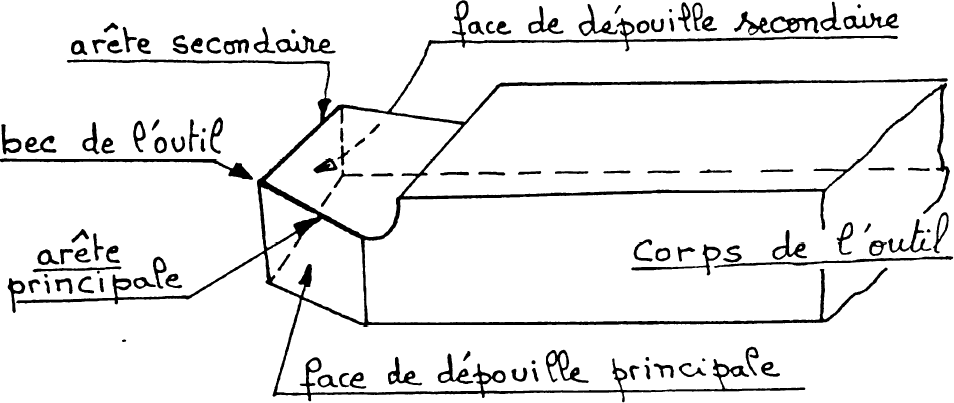 face de dépouille secondaire
arête secondaire
bec de l'outil
arête
principale
corps de l'outil
face de dépouille principale